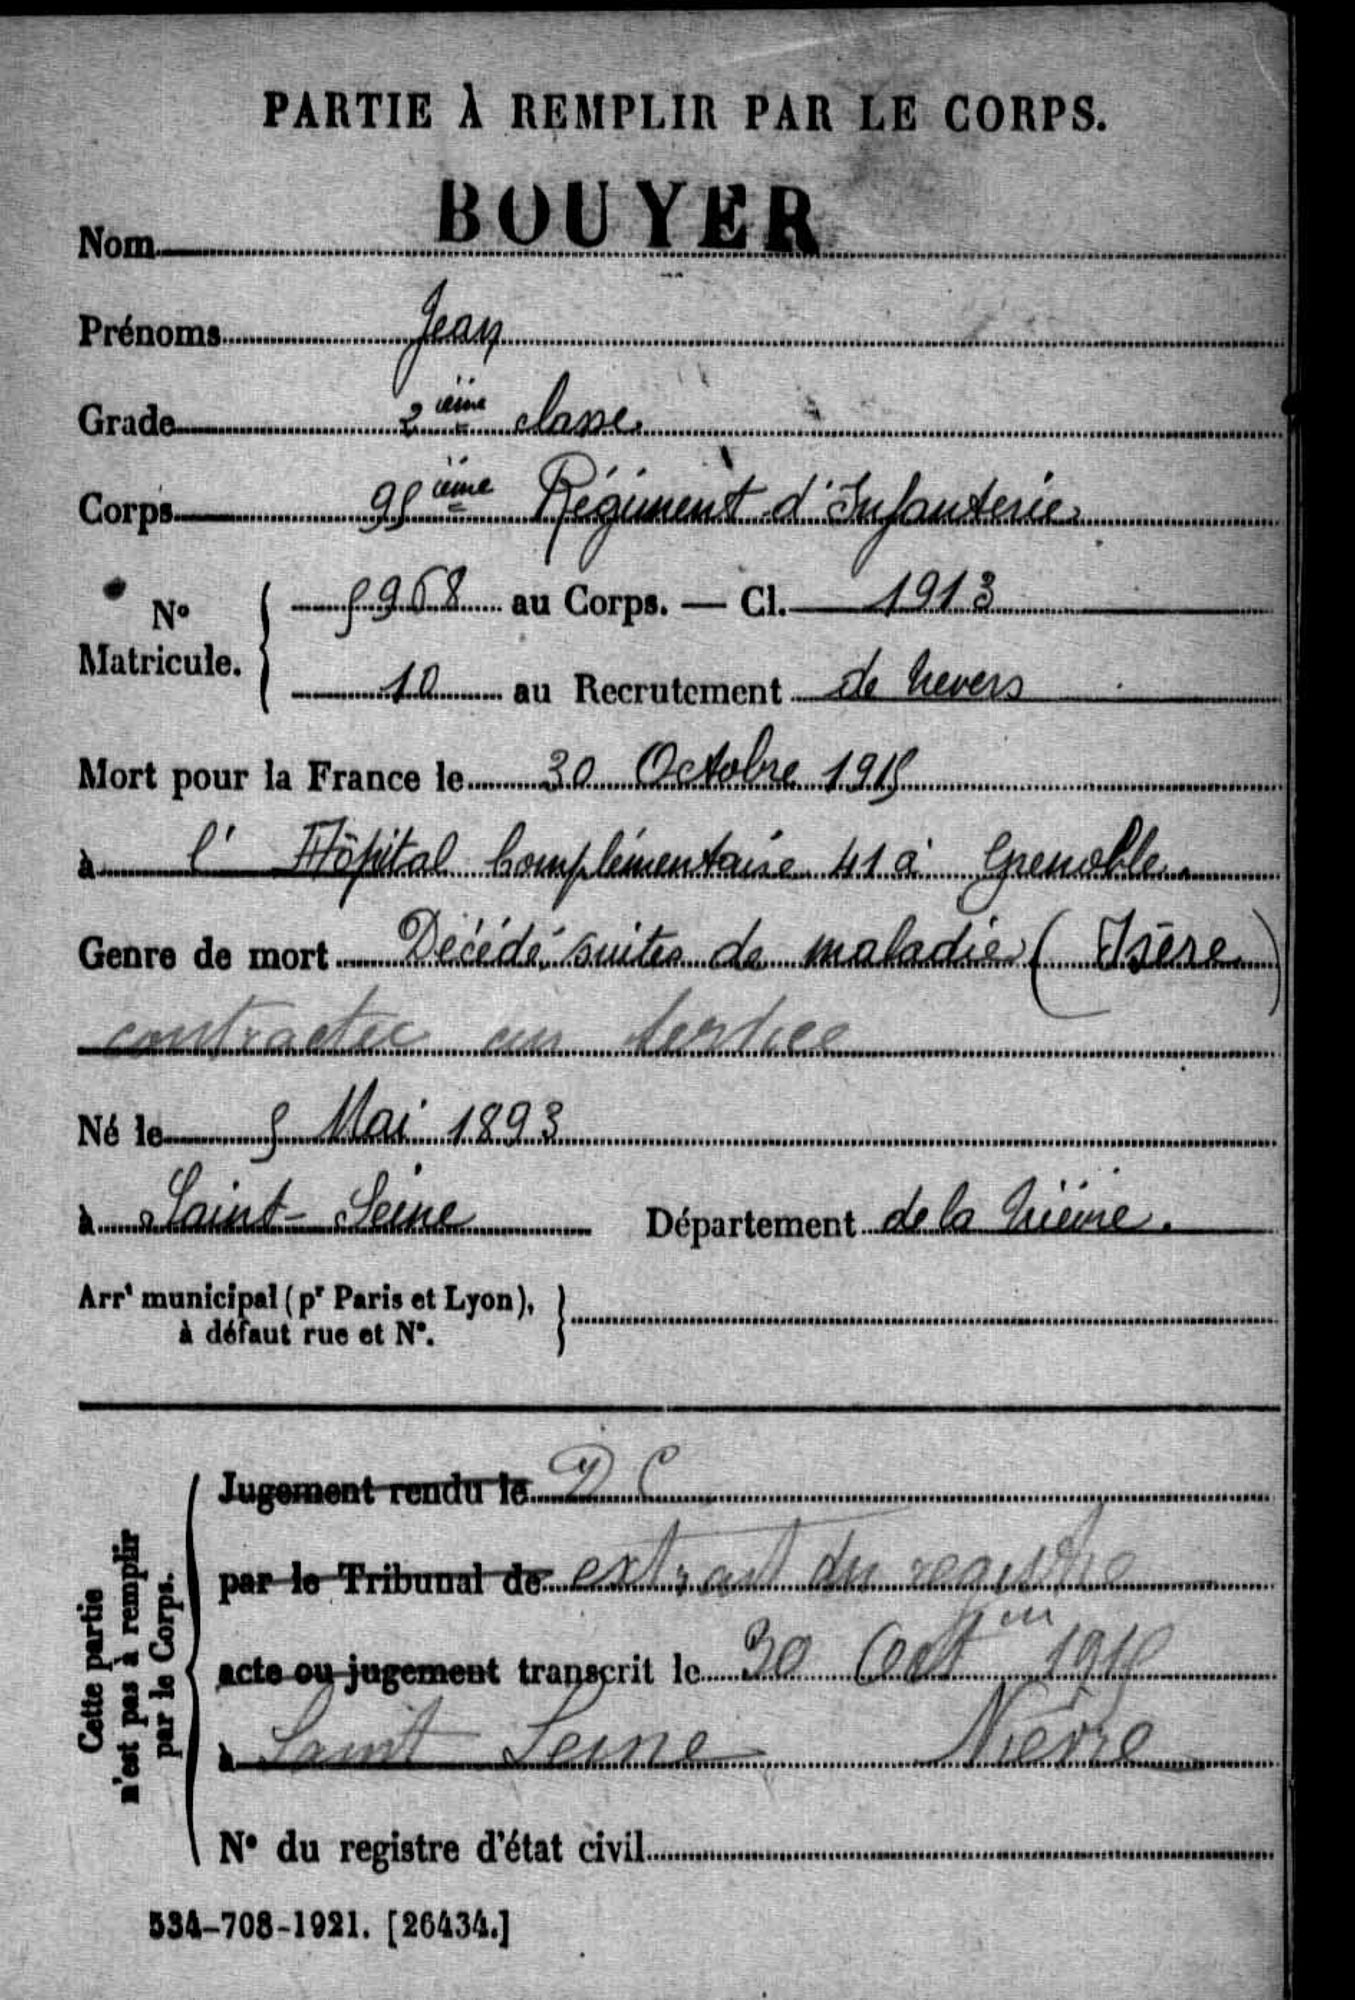 PARTIE À REMPLIR PAR LE CORPS.
Nom BOUYER
Prénoms Jean
Grade 2ième classe.
Corps 95ième Régiment d'Infanterie.
N° Matricule. 5968 au Corps. — Cl. 1913
10 au Recrutement de Nevers
Mort pour la France le 30 Octobre 1915
à l' Hôpital Complémentaire 41 à Grenoble.
Genre de mort Décédé suites de maladie ( Isère )
contractée en service
Né le 5 Mai 1893
à Saint-Seine Département de la Nièvre.
Arrt municipal (pr Paris et Lyon),
à défaut rue et N°.
Cette partie
n'est pas à remplir
par le Corps.
Jugement rendu le D C
par le Tribunal de extrait du registre
acte ou jugement transcrit le 30 1915
à Saint Seine Nièvre
N° du registre d'état civil
534-708-1921. [26434.]